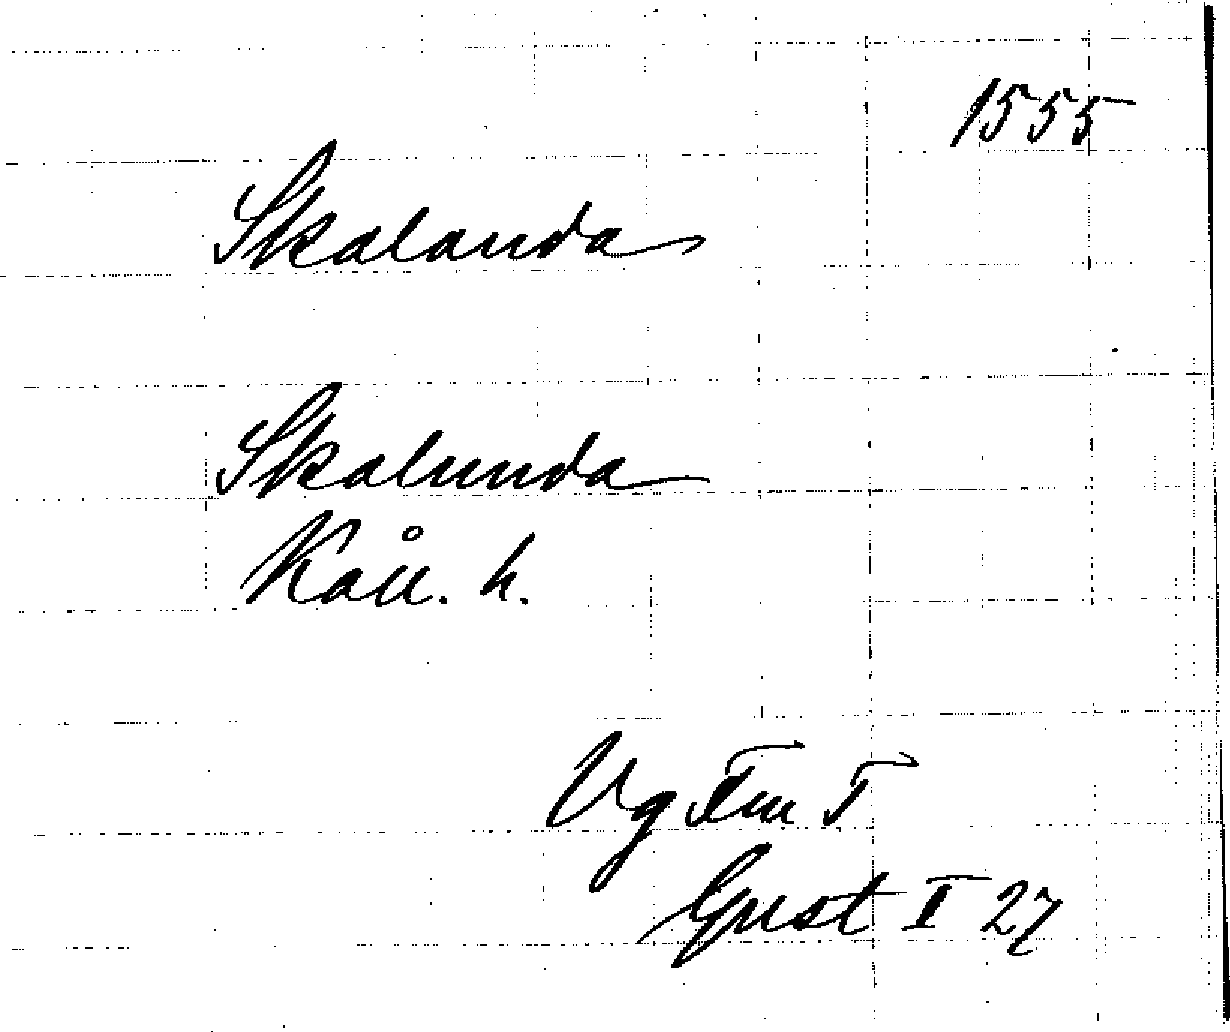 1555
Skalanda
Skalunda
Kåll. h.
Vg Fm I
Gust I 27